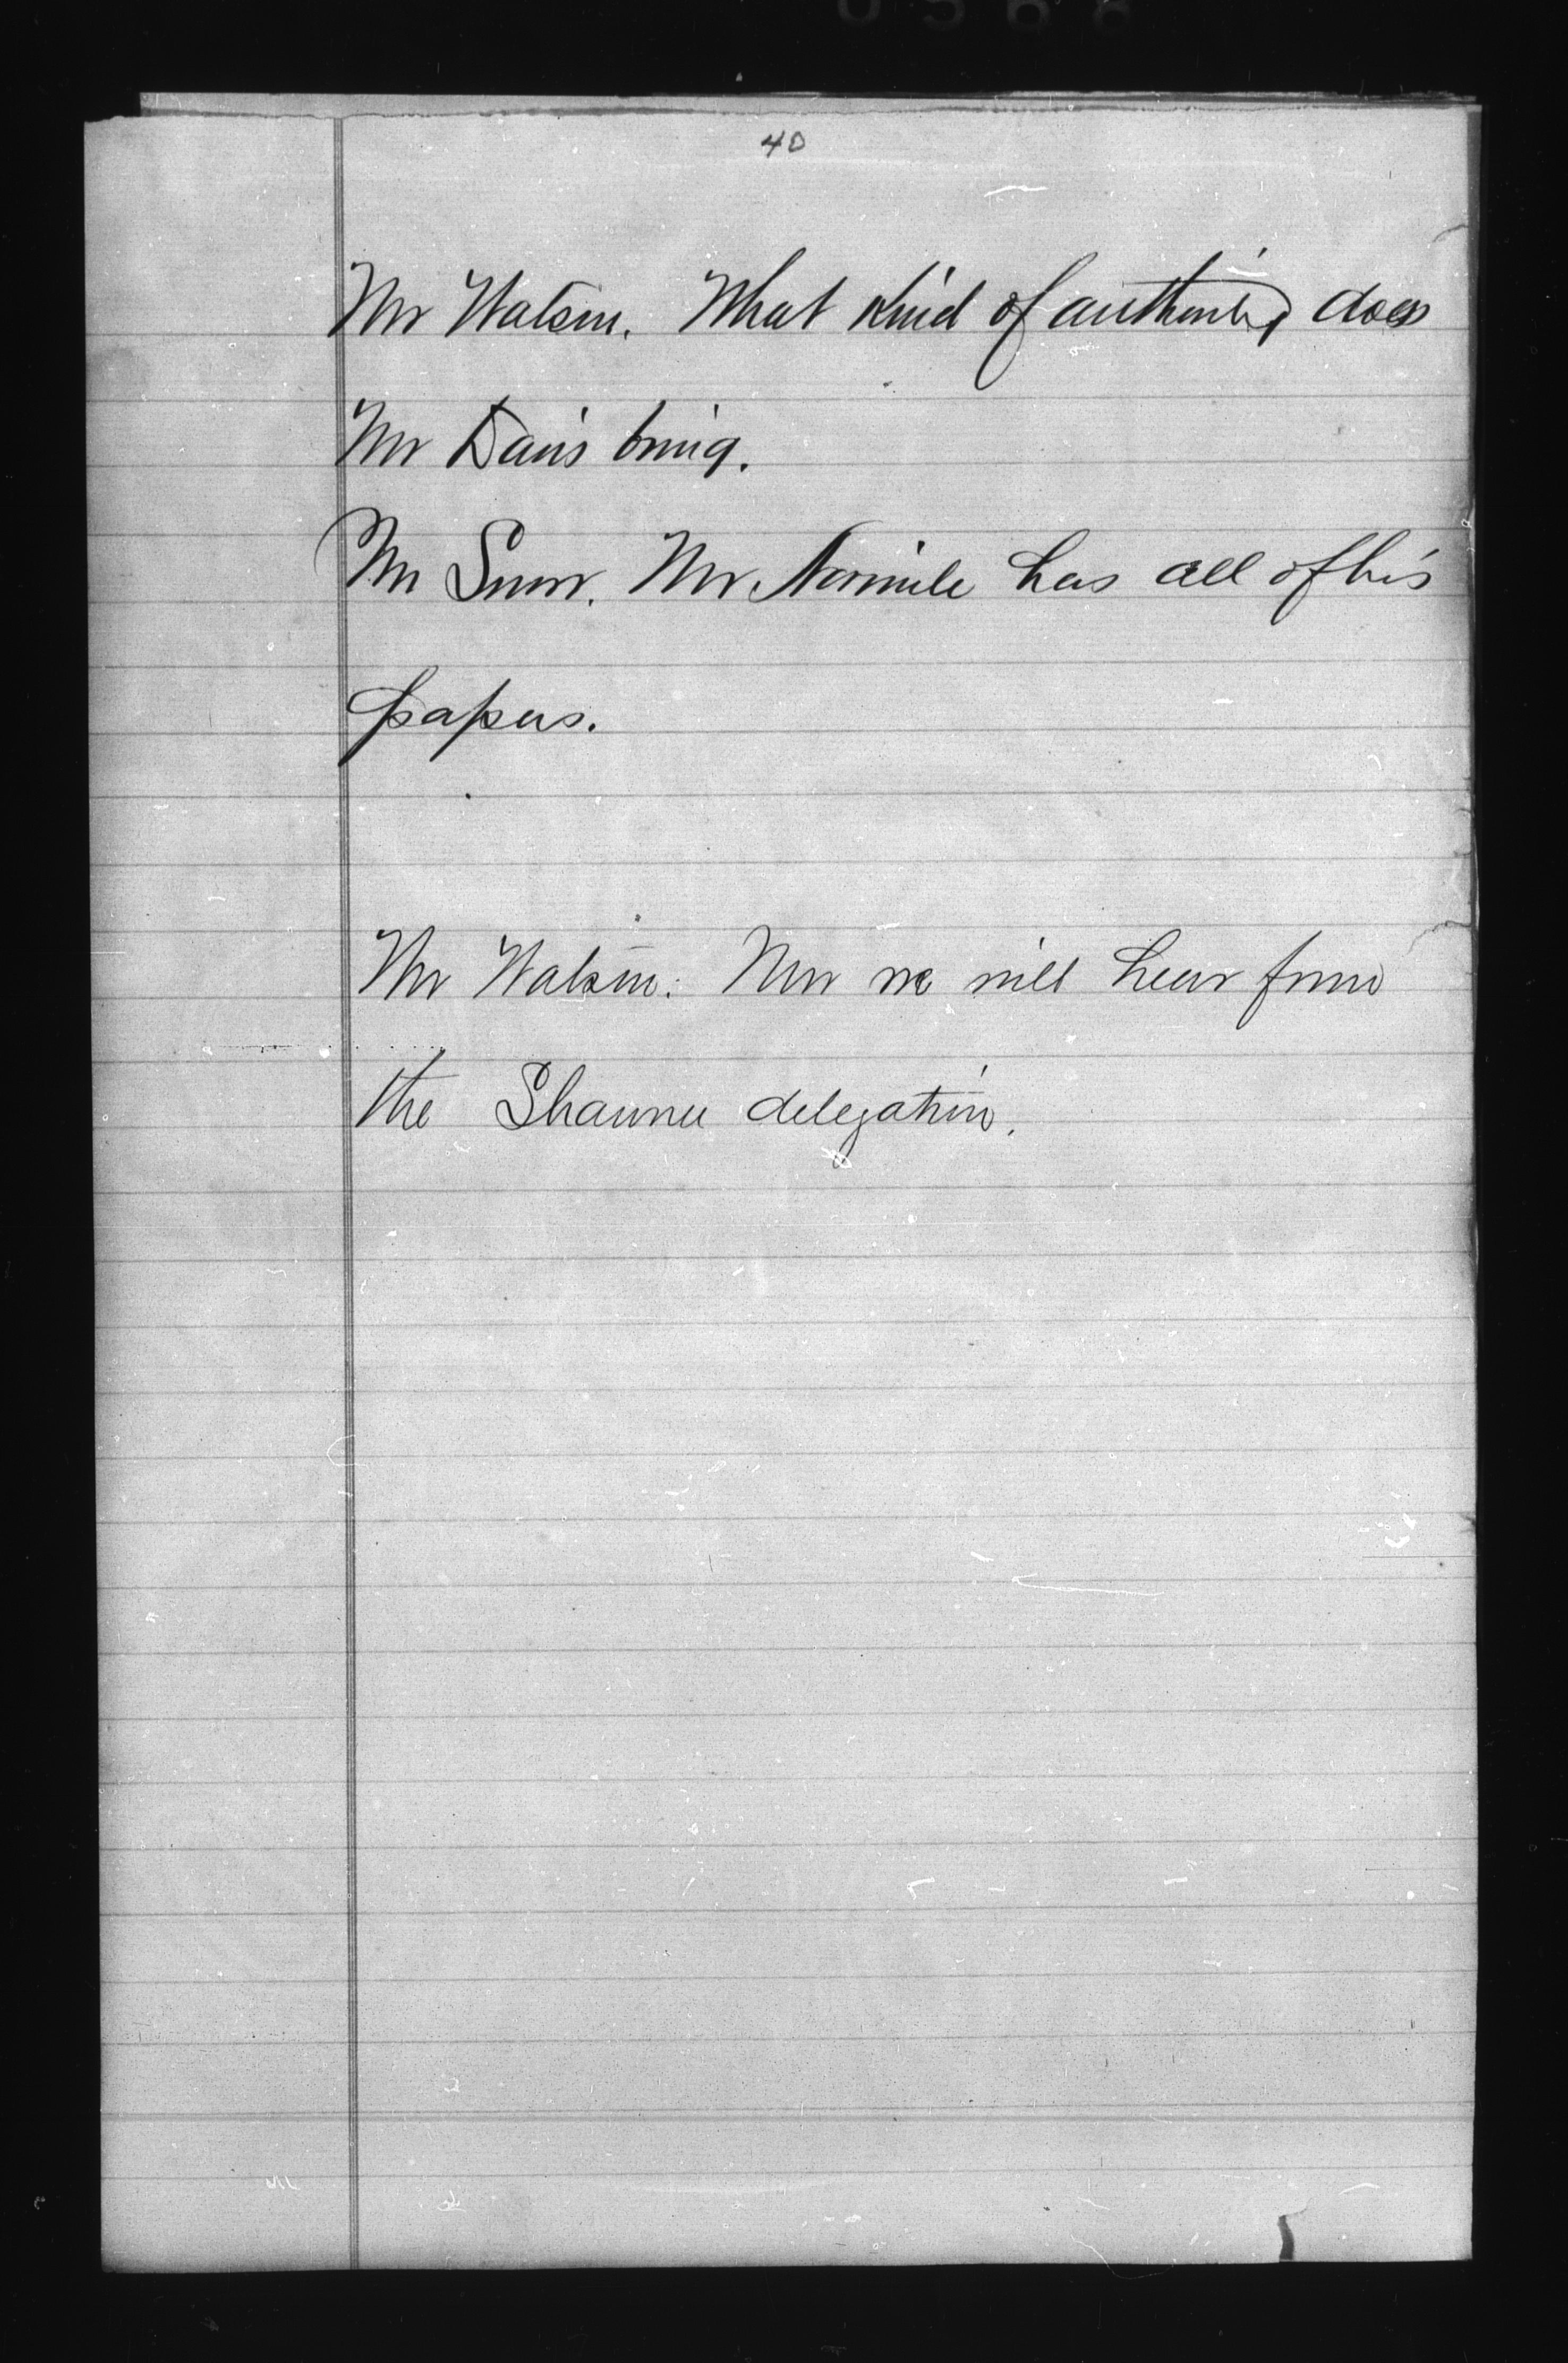 40
Mr Watson. What kind of authority does
Mr Davis bring.
Mr Snow. Mr Normile has all of his
papers.
Mr Watson: Now we will hear from
the Shawnee delegation.